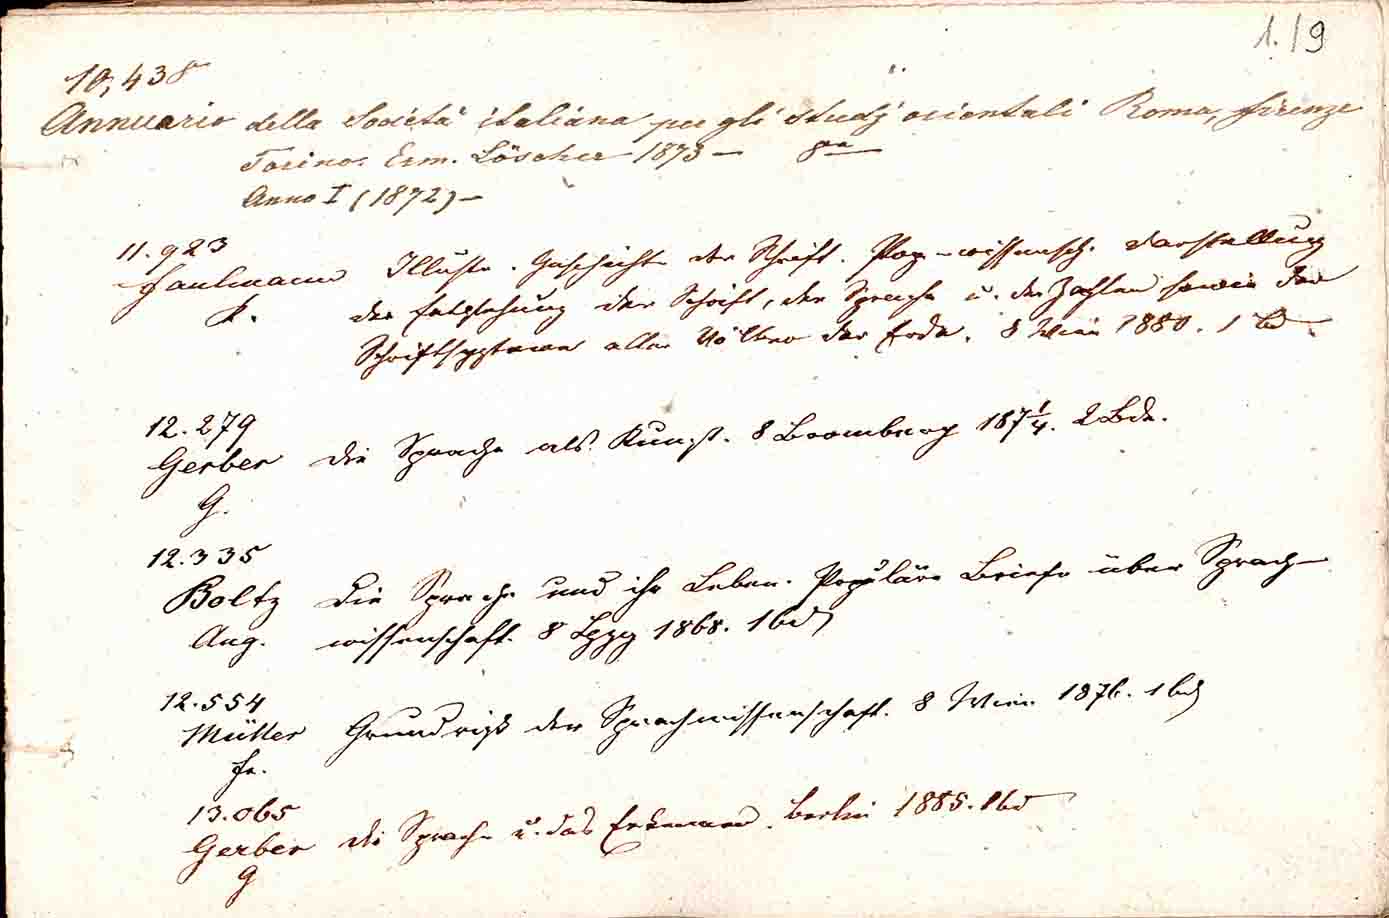 1.19
10,438
Annuario della Società italiana per gli studj orientali Roma, Firenze
Torino. Erm. Löscher 1873 — 8vo —
Anno I (1872) —
11.923
Faulmann Illustr. Geschichte der Schrift. Pop-wissensch. Darstellung
K. der Entstehung der Schrift, der Sprache u. der Zahlen sowie der
Schriftsysteme aller Völker der Erde. 8 Wien 1880. 1 Bd
12.279
Gerber die Sprache als Kunst. 8 Bromberg 187¼. 2 Bde.
G.
12.335
Boltz Die Sprache und ihr Leben. Populäre Briefe über Sprach-
Aug. wissenschaft. 8 Lpzg 1868. 1 bd
12.554
Müller Grundriß der Sprachwissenschaft. 8 Wien 1876. 1 bd
Fr.
13.065
Gerber die Sprache u. das Erkennen. Berlin 1885. 1 bd
G